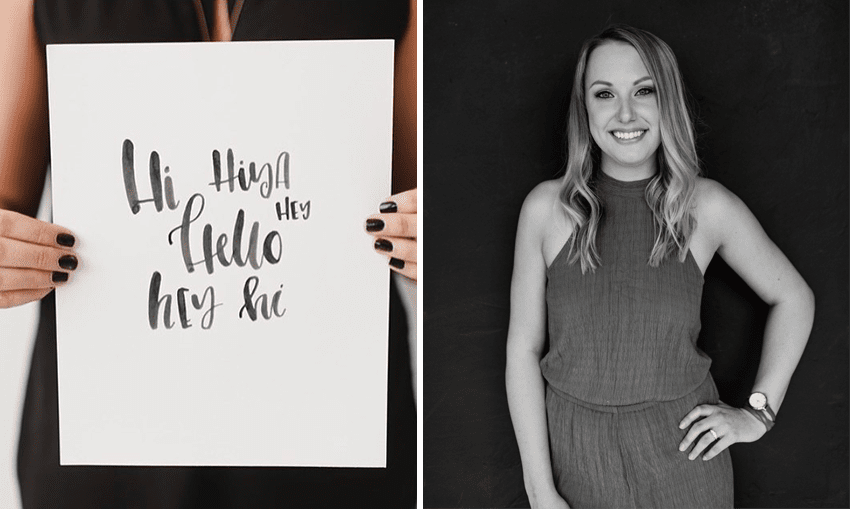 Hi Hiya
HEY
Hello
hey hi